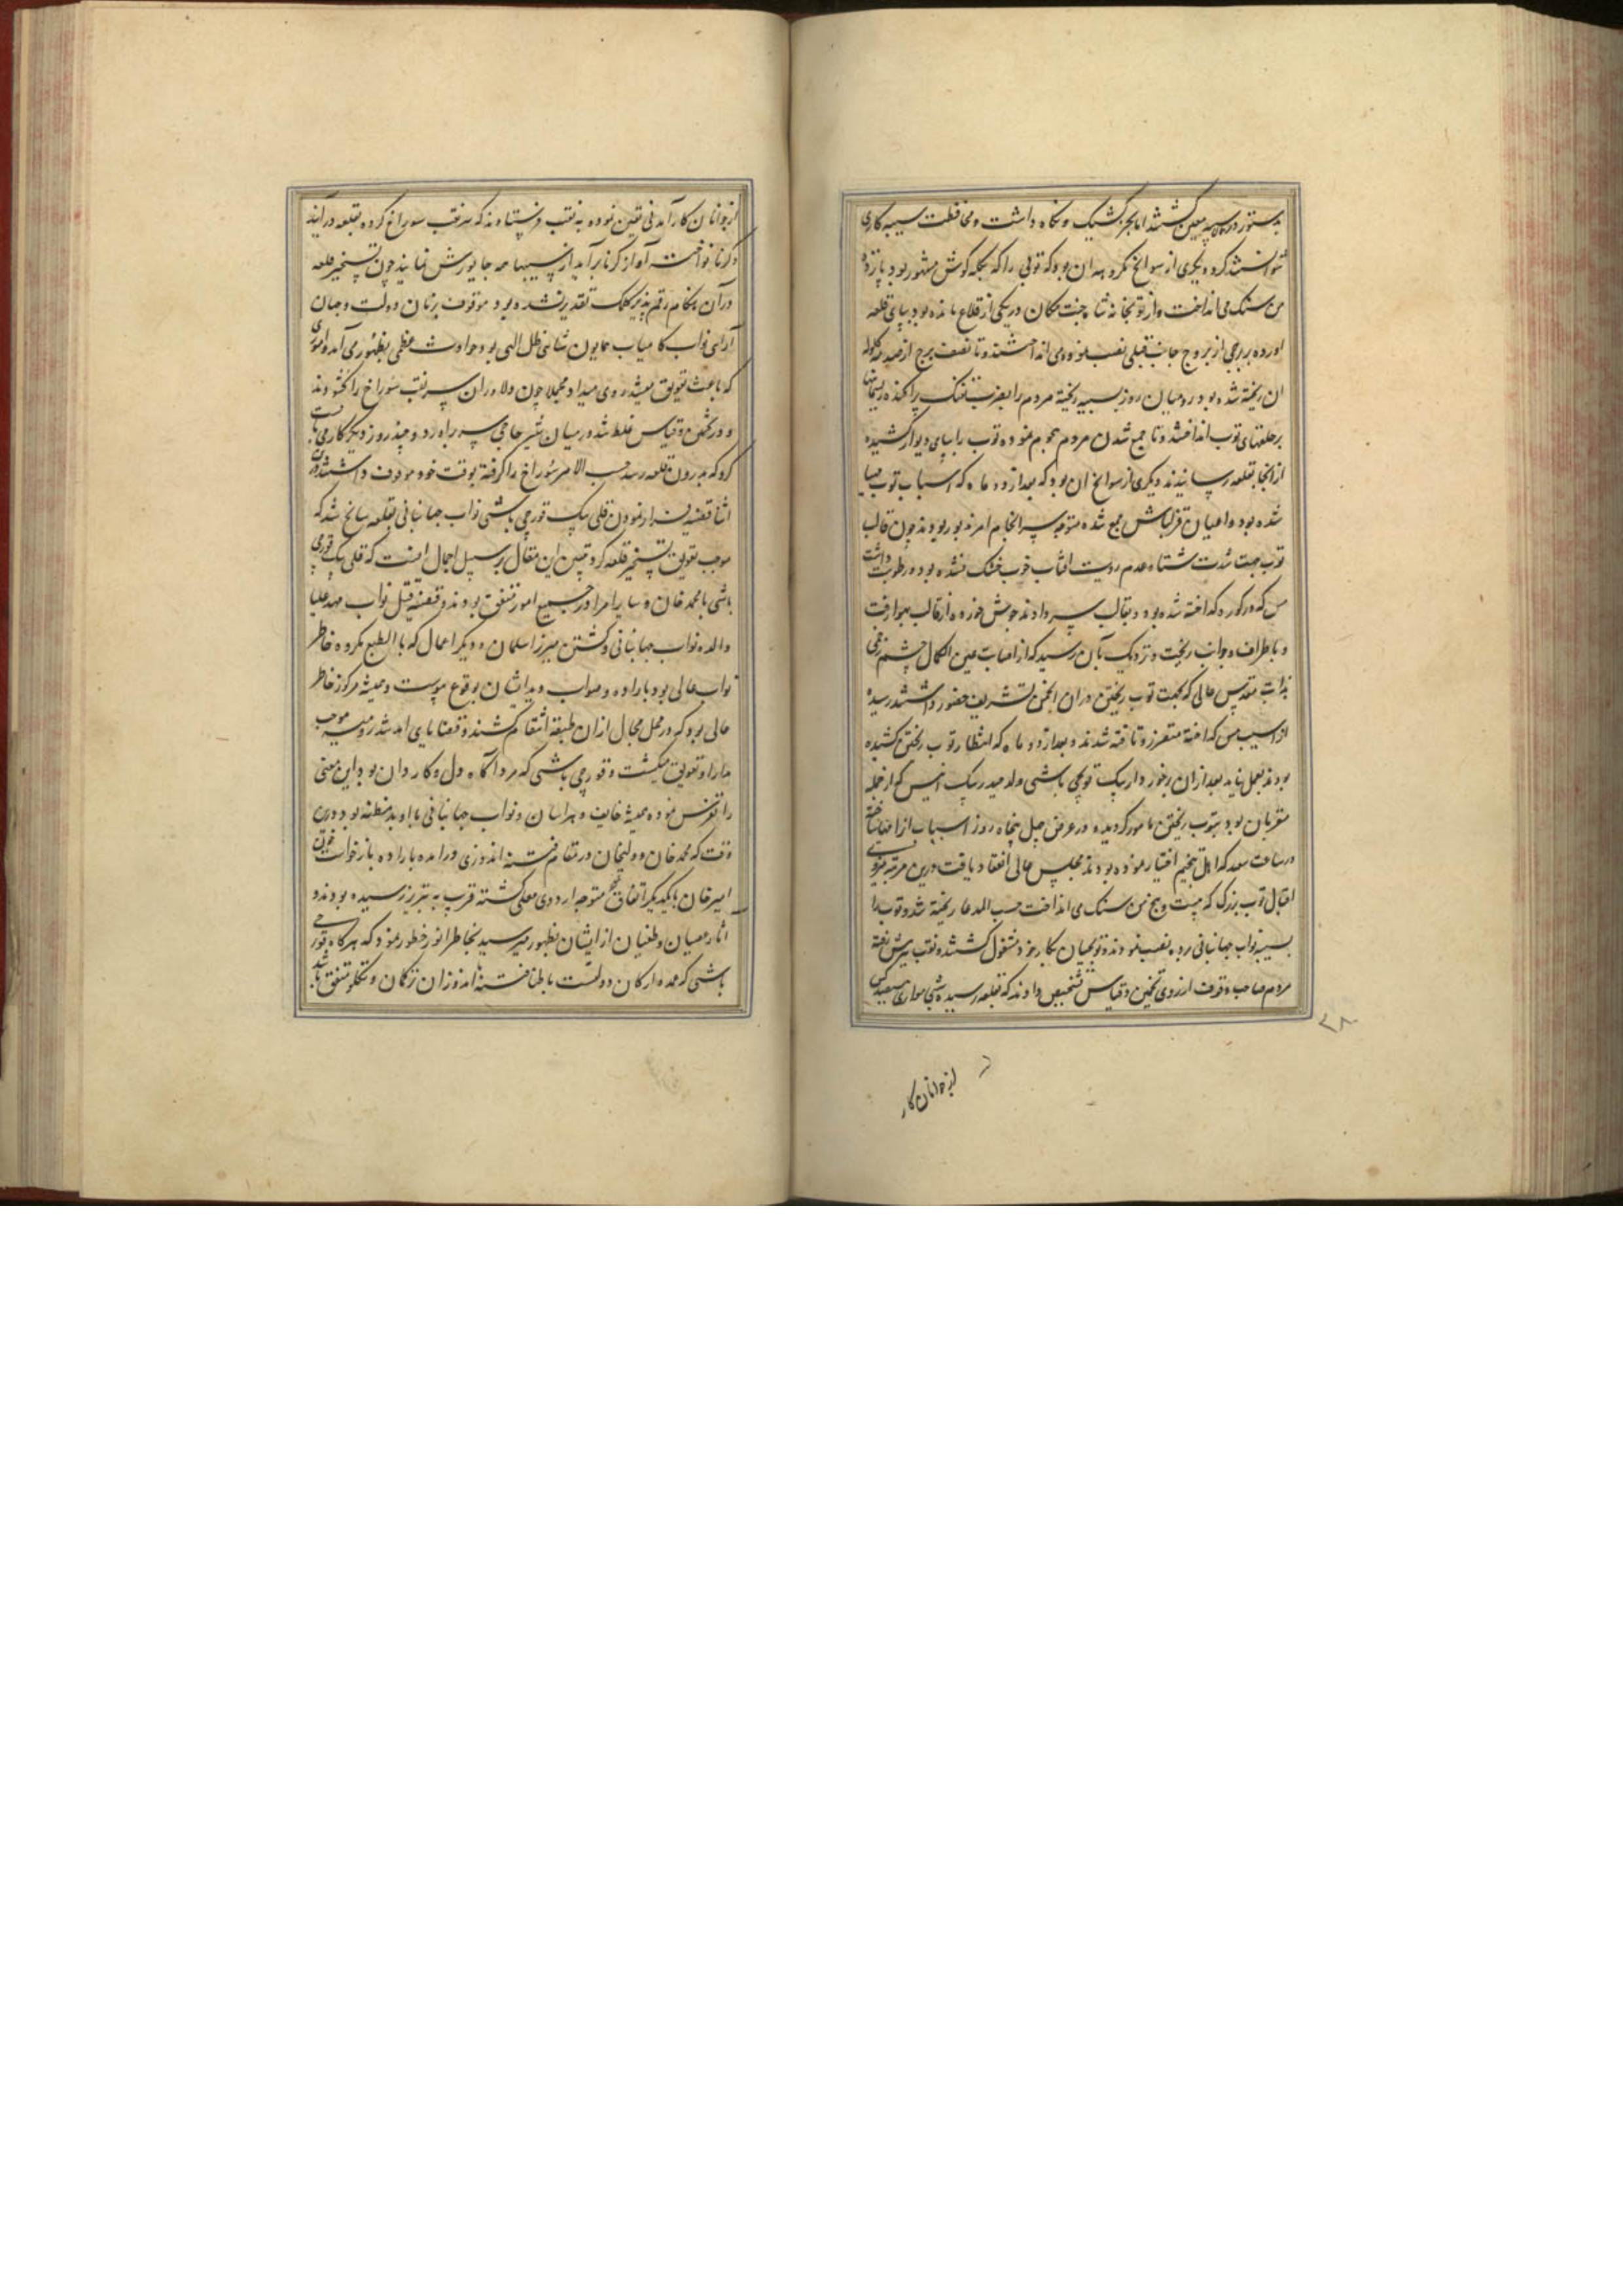 بدستور در کار سیبه معین کشتند اما بجز کشیک و نکاه داشت و محافظت سیبه کاری
نتوانستند کرد و دیکری از سوانح مکروهه ان بود که توپی را که بکله کوش مشهور بود پانزده
من سنک می انداخت و از توپخانه شاه جنت مکان در یکی از قلاع مانده بود بپای قلعه
اورده بر برجی از بروج جانب قبلی نصب نموده می انداختند و تا نصف برج از صدمه کلوله
ان ریخته شده بود رومیان روز بسیبه ریخته مردم را بضرب تفنک پراکنده ریسمانها
بر حلقهای توپ انداختند و تا جمع شدن مردم هجوم نموده توپ را بپای دیوار کشیده
از انجا بقلعه رسانیدند دیکری از سوانح ان بود که بعد از دو ماه که اسباب توپ مهیا
شده بود و اعیان قزلباش جمع شده متوجه سرانجام امر مزبور بودند چون قالب
توپ جهت شدت شتا و عدم رویت افتاب خوب خشک نشده بود و رطوبت داشت
مس که در کوره کداخته شده بود و بقالب سر دادند جوش خورده از قالب بهوا رفت
و باطراف و جوانب ریخت و نزدیک بآن رسید که از اصابت عین الکمال چشم زخمی
بذات مقدس عالی که بجهت توپ ریختن در ان انجمن تشریف حضور داشتند رسیده
از اسیب مس کداخته متضرر و تافته شدند و بعد از دو ماه که انتظار توپ ریختن کشیده
بودند بعمل نیامد بعد از ان برخوردار بیک توپچی باشی ولد حیدر بیک انیس که از جمله
مقربان بود بتوپ ریختن مامور کردیده در عرض چهل پنجاه روز اسباب از نو ساخته
در ساعت سعد که اهل تنجیم اختیار نموده بودند مجلس عالی انعقاد یافت درین مرتبه بنیروی
اقبال توپ بزرک که بیست و پنج من سنک می انداخت حسب المدعا ریخته شد و توپ را
بسیبه نواب جهانبانی برده نصب نمودند و توپچیان بکار خود مشغول کشتند و نقب پیش رفته
مردم صاحب وقوف از روی تخمین و قیاس تشخیص دادند که بقلعه رسیده شبی موازی سیصد کس
۳۸
از جوانان کار
از جوانان کار آمدنی تعیین نموده به نقب فرستادند که سر نقب سوراخ کرده بقلعه در آیند
و کرنا نواخته آواز کرنا برآید از سیبها همه جا یورش نمایند چون تسخیر قلعه
در آن هنکام رقم پذیر کلک تقدیر نشده بود و موقوف بزمان دولت و جهان
آرای نواب کامیاب همایون شاهی ظل الهی بود حوادث عظمی بظهور می آمد و اموری
که باعث تعویق میشد روی میداد مجملا چون دلاوران سر نقب سوراخ را کشودند
و در تخمین و قیاس غلط شده در میان شیر حاجی سر براورد و چند روز دیکر کار می بایست
کرد که بدرون قلعه رسد حسب الامر سوراخ را کرفته بوقت خود موقوف داشتند در ان
اثنا قضیه فرار نمودن قلی بیک قورچی باشی نواب جهانبانی بقلعه سانح شد که
موجب تعویق تسخیر قلعه کرد تبیین این مقال بر سبیل اجمال انست که قلی بیک قورچی
باشی با محمد خان و سایر امرا در جمیع امور متفق بودند و قضیه قتل نواب مهد علیا
والده نواب جهانبانی و کشتن میرزا سلمان و دیکر اعمال که بالطبع مکروه خاطر
نواب عالی بود باراده و صواب دید ایشان بوقوع پیوست و همیشه مرکوز خاطر
عالی بود که در محل مجال از ان طبقه انتقام کشند و قضایای امد شد رومیه موجب
مدارا و تعویق میکشت و قورچی باشی که مرد آکاه دل و کاردان بود این معنی
را تفرس نموده همیشه خایف و هراسان و نواب جهانبانی با او بد مظنه بود درین
وقت که محمد خان و ولیخان در مقام فتنه اندوزی در امده باراده بازخواست خون
امیر خان بایکدیکر اتفاق نموده متوجه اردوی معلی کشته قریب به تبریز رسیده بودند و
اثار عصیان و طغیان از ایشان بظهور میرسید بخاطر انور خطور نمود که هرکاه قورچی
باشی که عمده ارکان دولتست با طایفه فتنه اندوزان ترکمان و تکلو متفق باشد